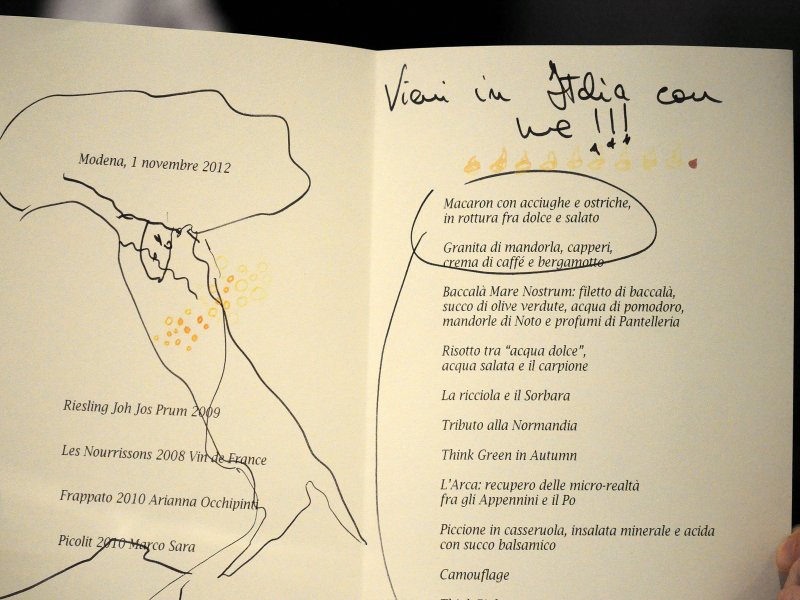 Modena, 1 novembre 2012
Riesling Joh Jos Prum 2009
Les Nourrissons 2008 Vin de France
Frappato 2010 Arianna Occhipinti
Picolit 2010 Marco Sara
Vieni in Italia con
me !!!
Macaron con acciughe e ostriche,
in rottura fra dolce e salato
Granita di mandorla, capperi,
crema di caffé e bergamotto
Baccalà Mare Nostrum: filetto di baccalà,
succo di olive verdute, acqua di pomodoro,
mandorle di Noto e profumi di Pantelleria
Risotto tra “acqua dolce”,
acqua salata e il carpione
La ricciola e il Sorbara
Tributo alla Normandia
Think Green in Autumn
L’Arca: recupero delle micro-realtà
fra gli Appennini e il Po
Piccione in casseruola, insalata minerale e acida
con succo balsamico
Camouflage